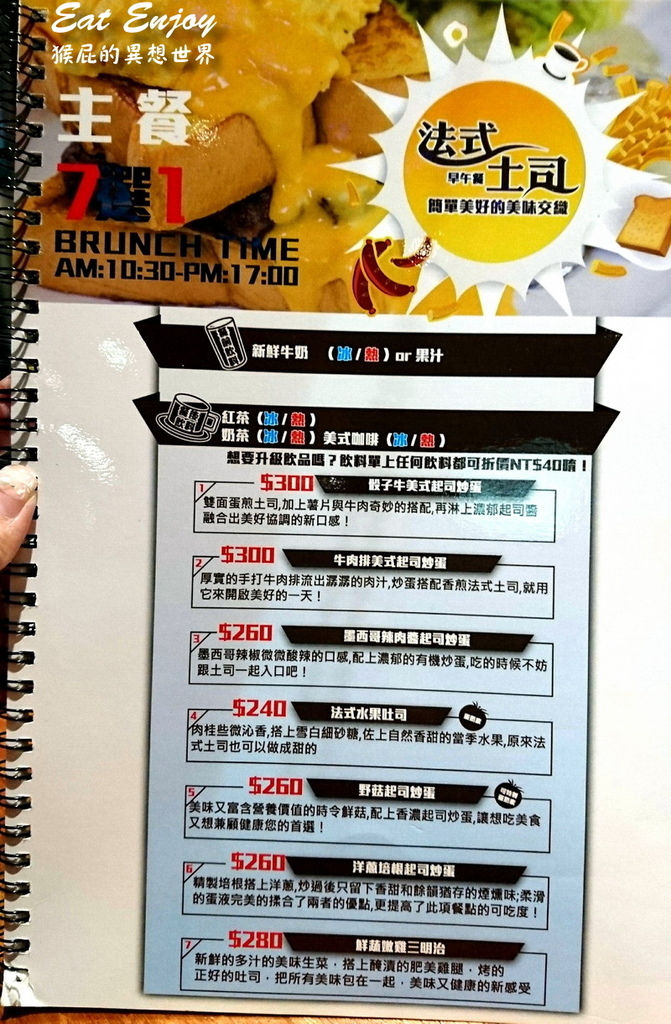 Eat Enjoy
猴屁的異想世界
主餐
7選1
BRUNCH TIME
AM:10:30-PM:17:00
法式
早午餐 土司
簡單美好的美味交織
新鮮牛奶 (冰/熱) or 果汁
紅茶 (冰/熱)
奶茶 (冰/熱) 美式咖啡 (冰/熱)
想要升級飲品嗎?飲料單上任何飲料都可折價NT$40唷!
1 $300 骰子牛美式起司炒蛋
雙面蛋煎土司,加上薯片與牛肉奇妙的搭配,再淋上濃郁起司醬
融合出美好協調的新口感!
2 $300 牛肉排美式起司炒蛋
厚實的手打牛肉排流出潺潺的肉汁,炒蛋搭配香煎法式土司,就用
它來開啟美好的一天!
3 $260 墨西哥辣肉醬起司炒蛋
墨西哥辣椒微微酸辣的口感,配上濃郁的有機炒蛋,吃的時候不妨
跟土司一起入口吧!
4 $240 法式水果吐司
肉桂些微沁香,搭上雪白細砂糖,佐上自然香甜的當季水果,原來法
式土司也可以做成甜的
5 $260 野菇起司炒蛋
美味又富含營養價值的時令鮮菇,配上香濃起司炒蛋,讓想吃美食
又想兼顧健康您的首選!
6 $260 洋蔥培根起司炒蛋
精製培根搭上洋蔥,炒過後只留下香甜和餘韻猶存的煙燻味;柔滑
的蛋液完美的揉合了兩者的優點,更提高了此項餐點的可吃度!
7 $280 鮮蔬嫩雞三明治
新鮮的多汁的美味生菜，搭上醃漬的肥美雞腿，烤的
正好的吐司，把所有美味包在一起，美味又健康的新感受